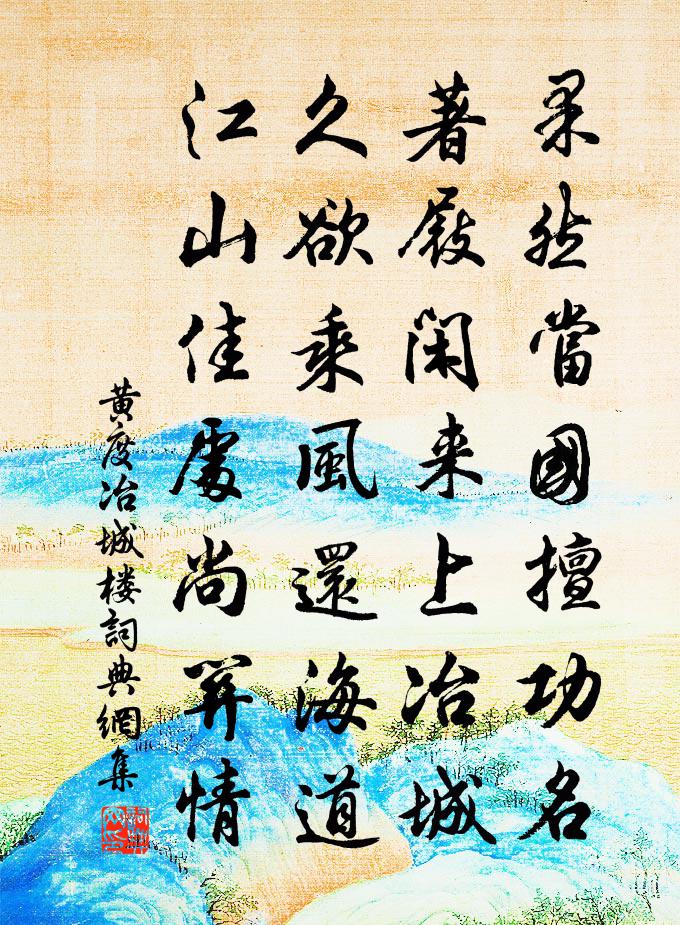 果然當國擅功名
著屐閑来上冶城
久欲乘風還海道
江山佳處尚關情
黄度冶城楼詞典網集